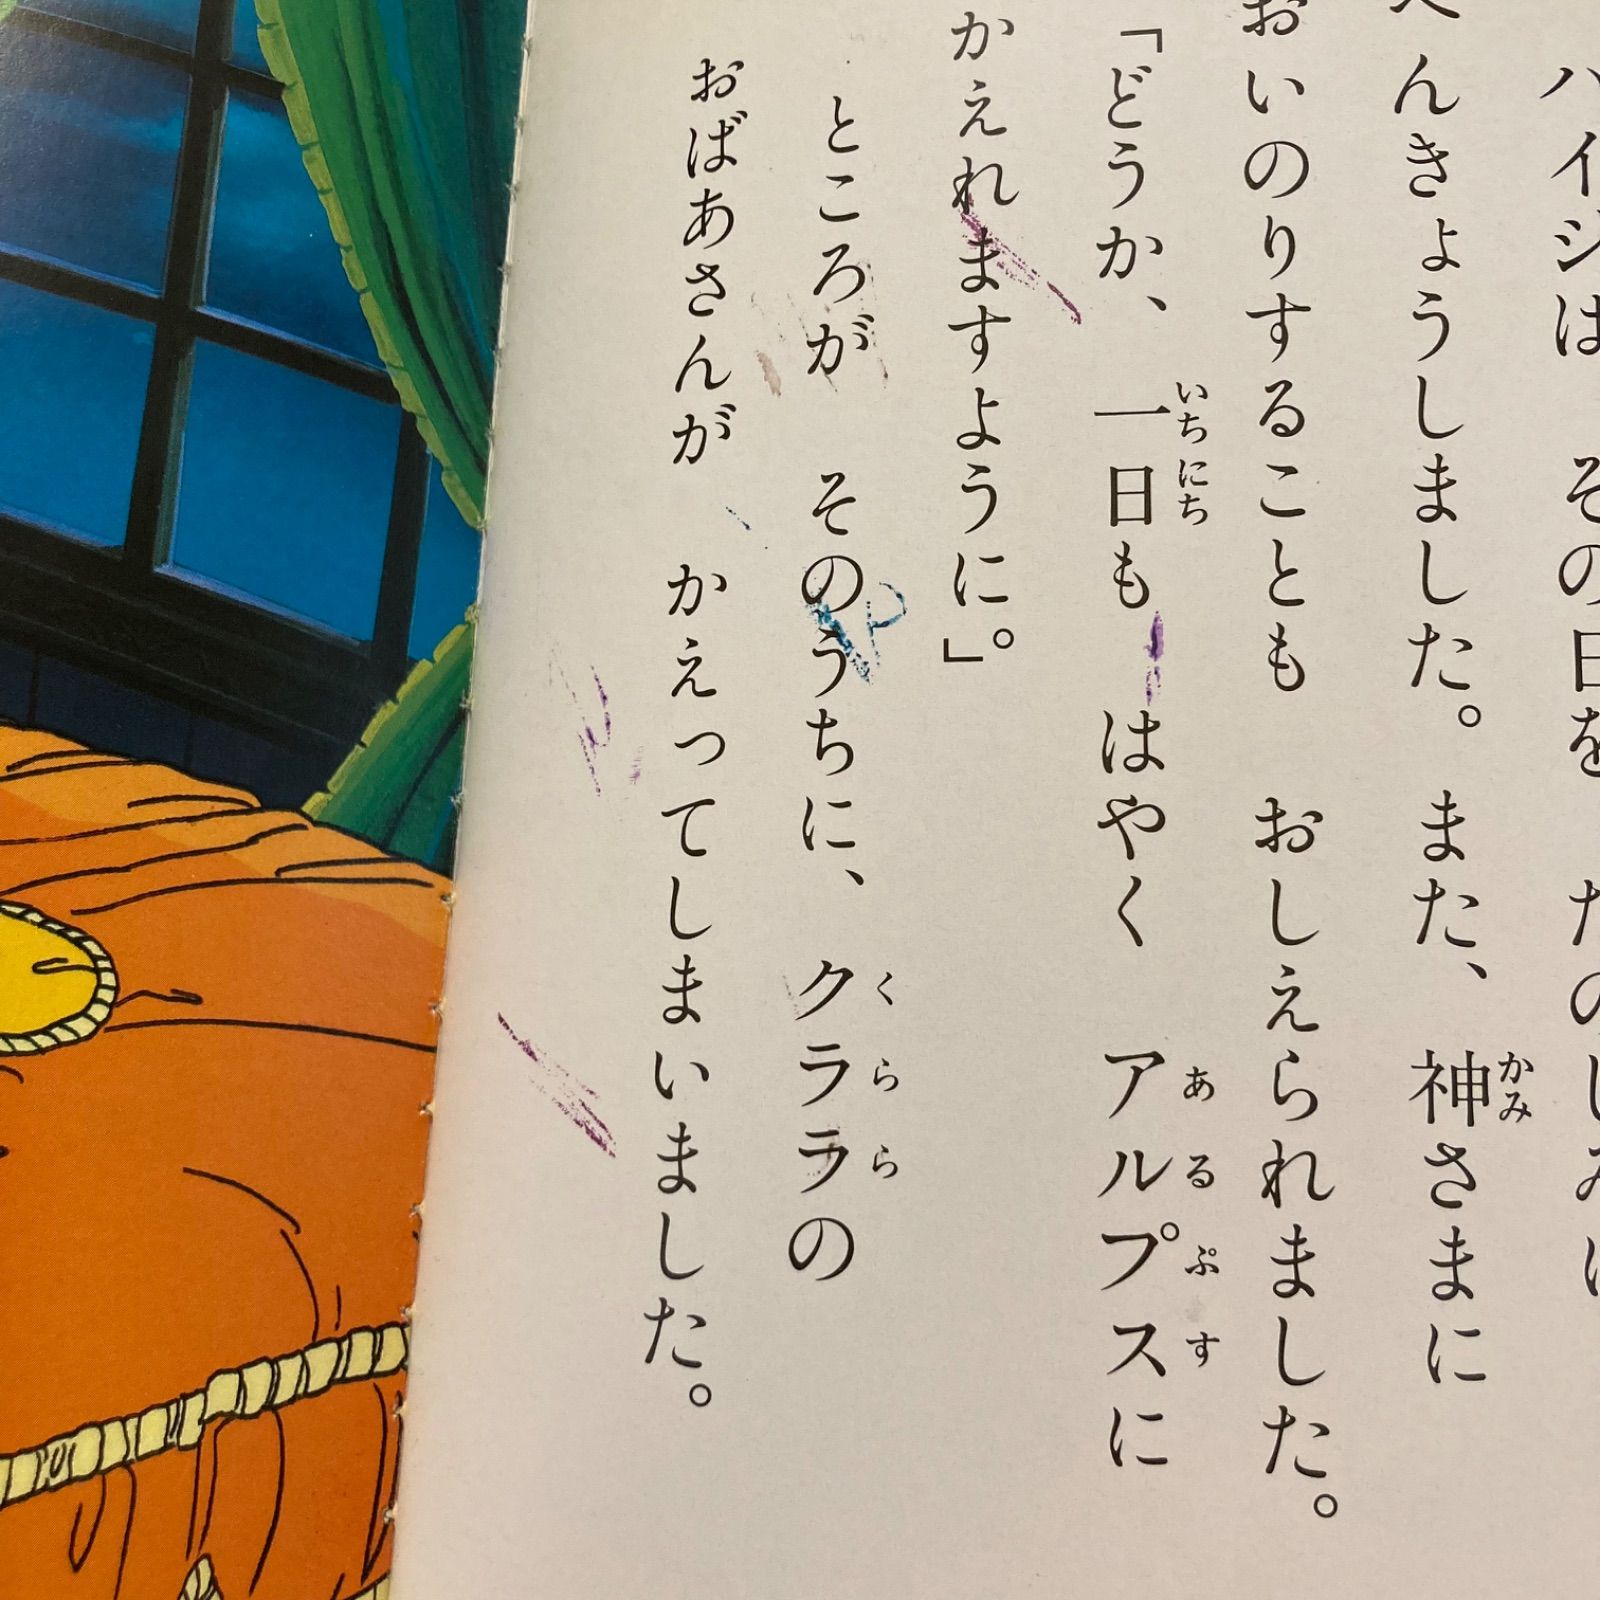 ハイジは その日を たのしみに
べんきょうしました。また、神さまに
おいのりすることも おしえられました。
「どうか、一日も はやく アルプスに
かえれますように」。
ところが そのうちに、クララの
おばあさんが かえってしまいました。
いちにち
かみ
あるぷす
くらら